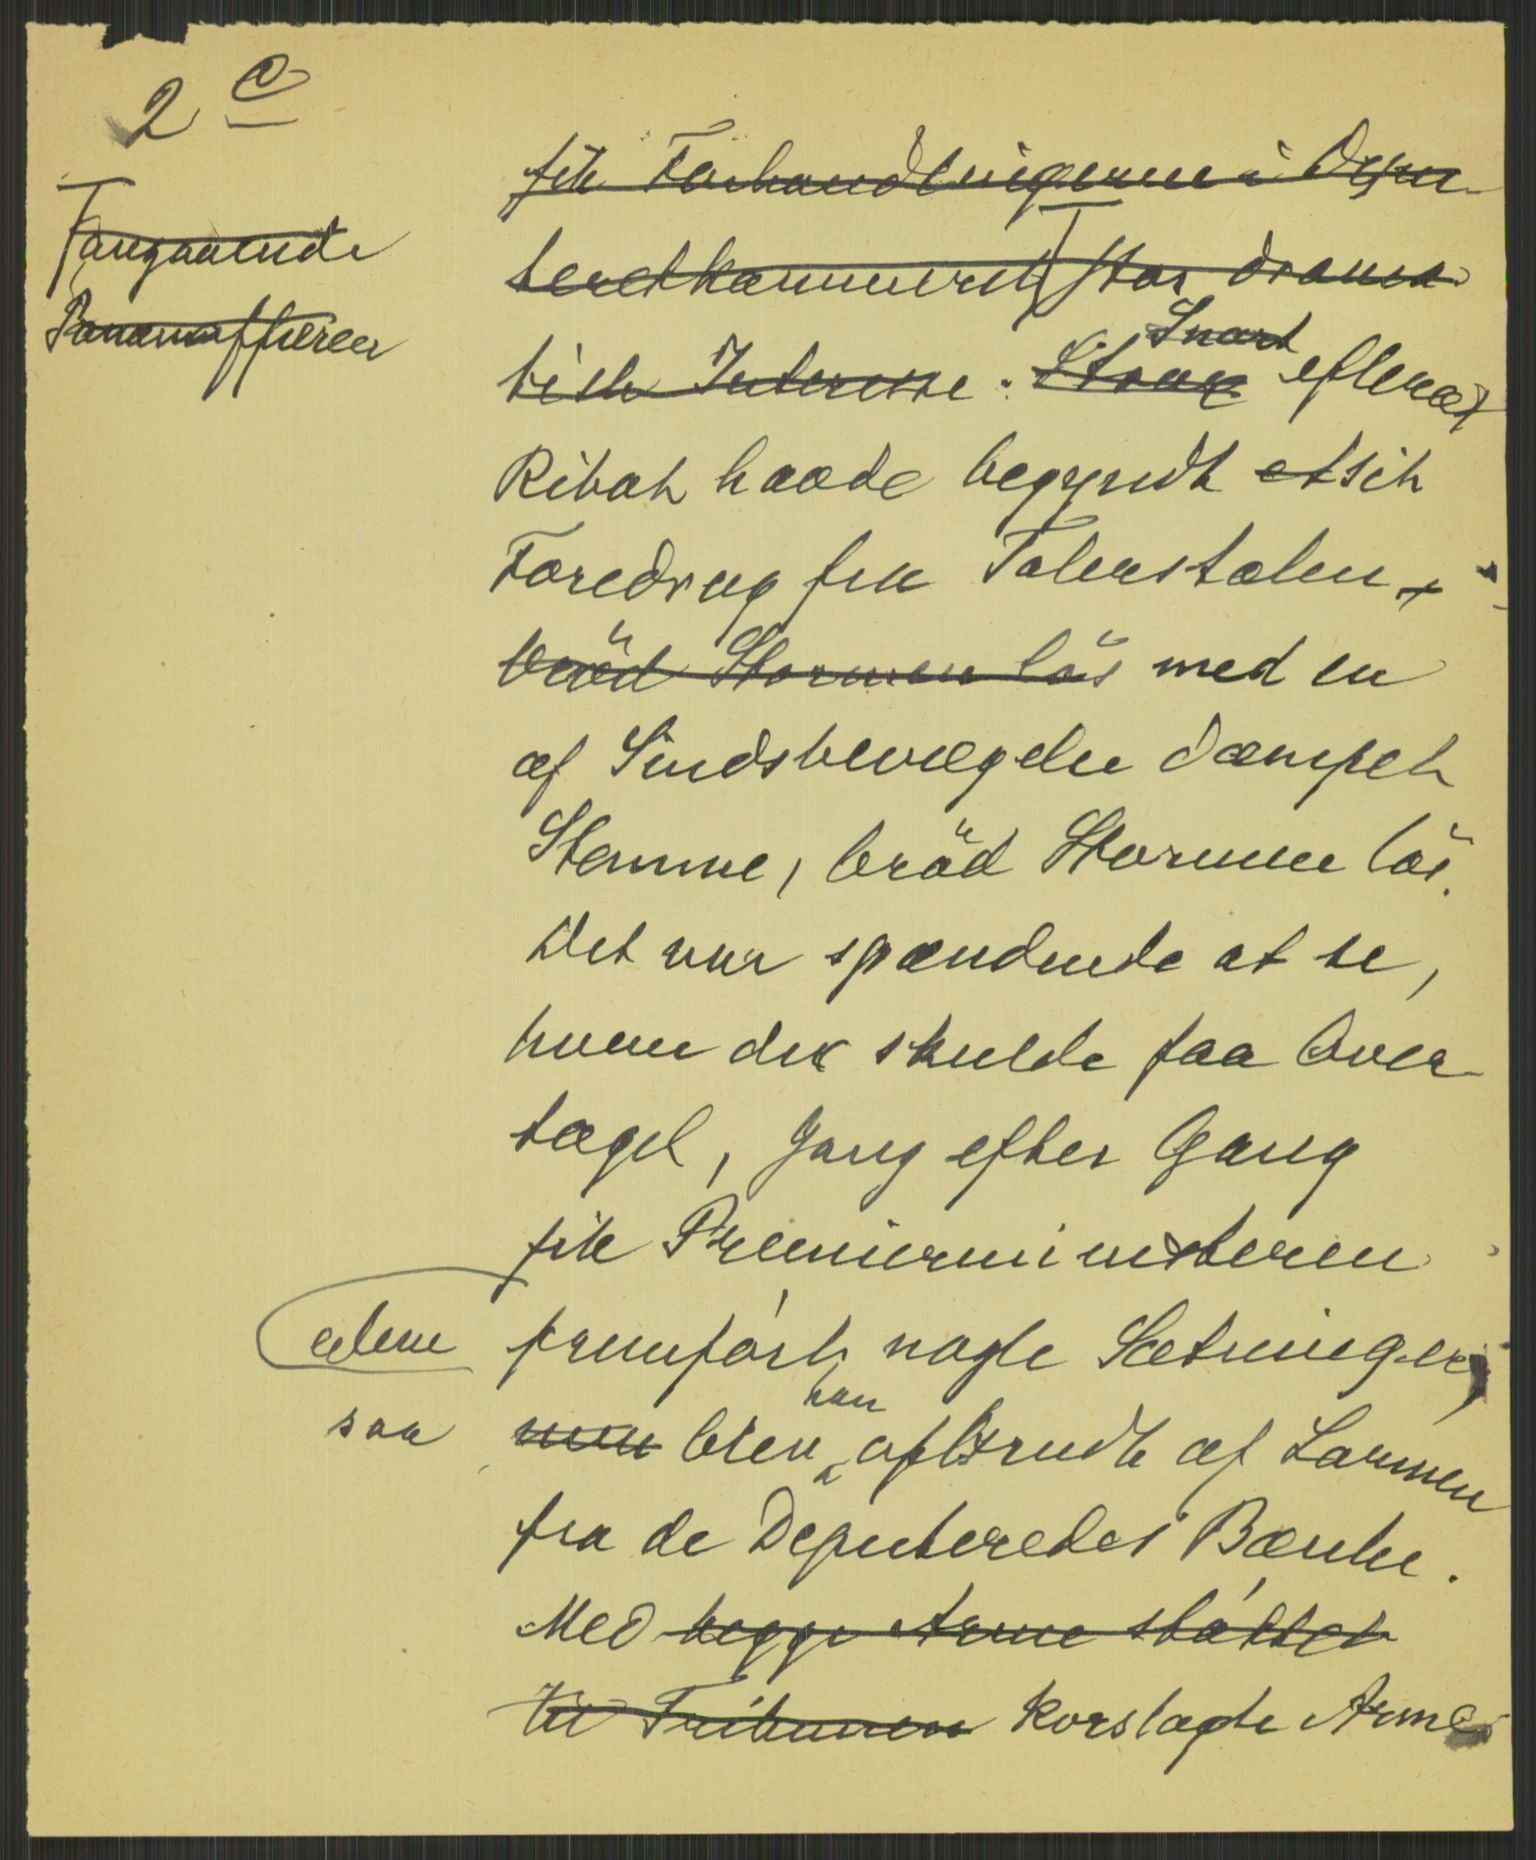 2 c
T angaaende
Panamaffæren
fik Forhandlingerne i Depu-
teretkammeret T stor drama
tisk Interesse. Strax Snart efterat
Ribot havde begyndt et sit
Foredrag fra Talerstolen,
bröd Stormen lös med en
af Sindsbevægelse dæmpet
Stemme, bröd Stormen lös.
Det var spændende at se,
hvem der skulde faa Over-
taget, Gang efter Gang
fik Premierministeren
alene fremfört nogle Sætninger,
saa men blev han afbrudt af Larmen
fra de Deputeredes Bænke.
Med begge Arme støttet
til Tribunen korslagte Arme